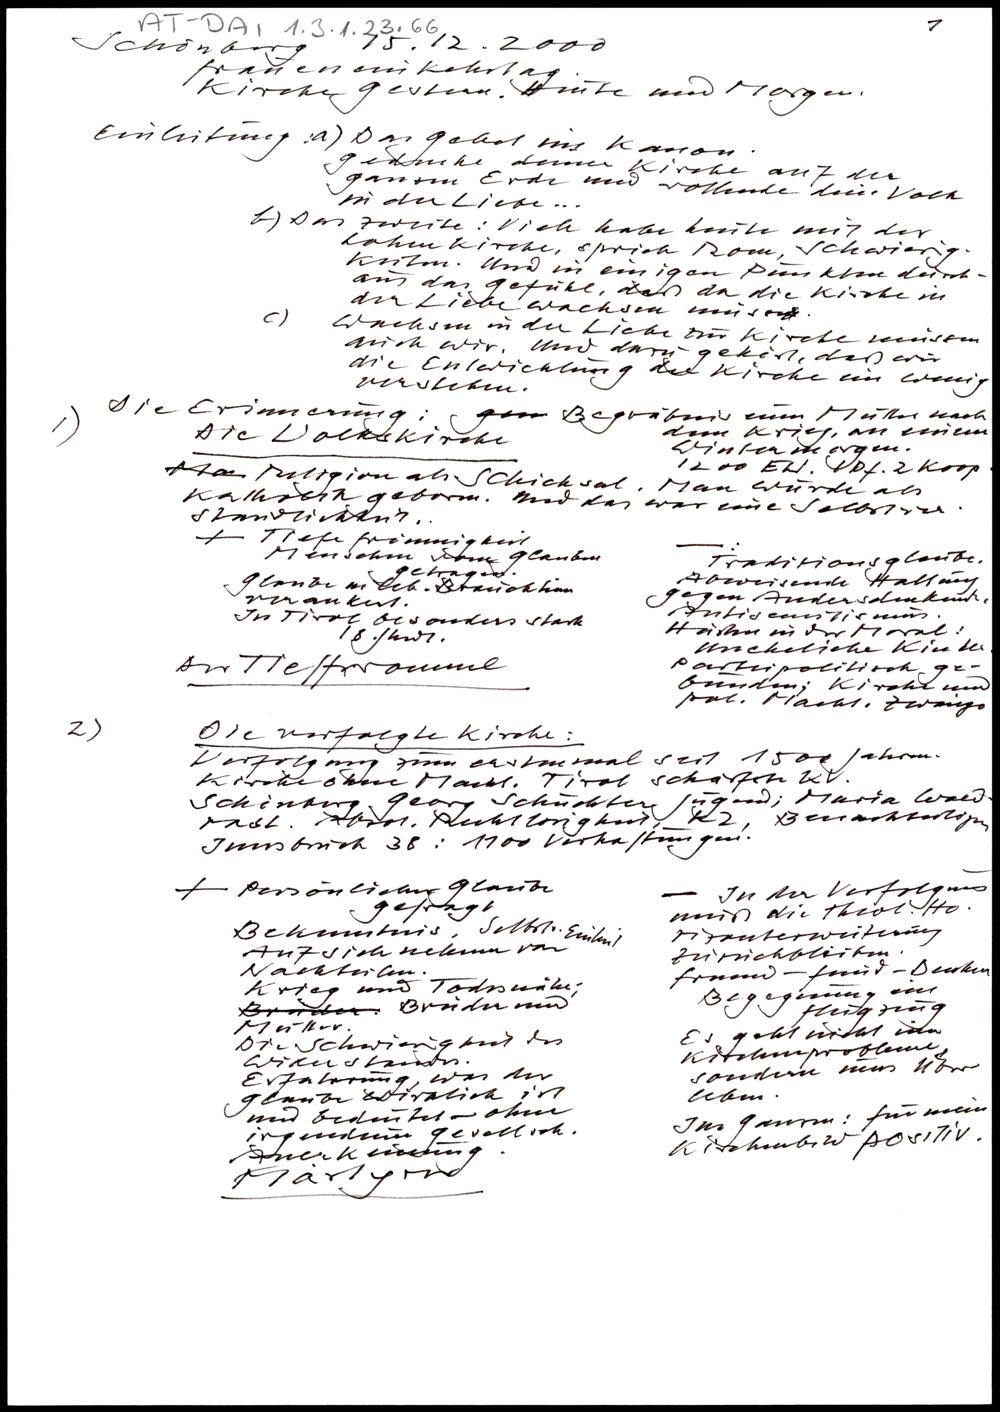 AT-DAI 1.3.1.23.66
1
Schönberg 15.12.2000
Fraueneinkehrtag.
Kirche Gestern. Heute und Morgen.
Einleitung: a) Das Gebet im Kanon.
gedenke deiner Kirche auf der
ganzen Erde und vollende dein Volk
in der Liebe...
b) Das zweite: Viele haben heute mit der
hohen Kirche, sprich Rom, Schwierig-
keiten. Und in einigen Punkten durch-
aus das Gefühl, daß da die Kirche in
der Liebe wachsen müsse.
c) Wachsen in der Liebe zur Kirche müssen
auch wir. Und dazu gehört, daß wir
die Entwicklung der Kirche ein wenig
verstehen.
1) Die Erinnerung: Begräbnis einer Mutter nach
dem Krieg, an einem
Wintermorgen.
1200 EW. 2 Koop.
Die Volkskirche
Religion als Schicksal. Man wurde als
Katholik geboren. Und das war eine Selbstver-
ständlichkeit.
+ Tiefe Frömmigkeit
Menschen vom Glauben
getragen.
Glaube in Brauchtum
verankert.
In Tirol besonders stark
18. Jhdt.
Der Tieffromme
— :
Traditionsglaube.
Abweisende Haltung
gegen Andersdenkende.
Antisemitismus.
Härten in der Moral:
Uneheliche Kinder
Parteipolitisch ge-
bunden; Kirche und
pol. Macht. Zwänge
2) Die verfolgte Kirche:
Verfolgung zum erstenmal seit 1500 Jahren.
Kirche ohne Macht. Tirol schärfste KV.
Schönberg, Georg Schuchter, Jugend; Maria Wald-
rast. Absol. Rechtlosigkeit, KZ, Benachteiligung
Innsbruck 38: 1100 Verhaftungen.
+ Persönlicher Glaube
gefragt
Bekenntnis,
Auf sich nehmen von
Nachteilen.
Krieg und Todesnähe;
Brüder und
Mutter.
Die Schwierigkeit des
Widerstandes.
Erfahrung, was der
Glaube wirklich ist
und bedeutet – ohne
irgendeine gesellsch.
Anerkennung.
Märtyrer
— In der Verfolgung
muß die theol. Ho-
rizonterweiterung
zurückbleiben.
Freund – Feind – Denken
Begegnung im
Flugzeug
Es geht nicht um
Kirchenprobleme,
sondern ums Über-
leben.
Im Ganzen: für mein
Kirchenbild positiv.